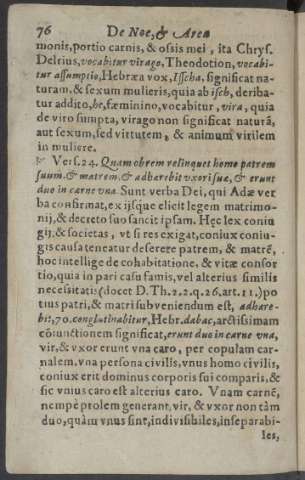 76 De Noe, & Arca
monis, portio carnis, & ossis mei, ita Chrys.
Delrius, vocabitur virago, Theodotion, vocabi-
tur assumptio, Hebræa vox, Isscha, significat na-
turam, & sexum mulieris, quia ab isch, deriba-
tur addito, he, fæminino, vocabitur, vira, quia
de viro sumpta, virago non significat naturã,
aut sexum, sed virtutem, & animum virilem
in muliere.
Vers. 24. Quam obrem relinquet homo patrem
suum, & matrem, & adhærebit vxori suæ, & erunt
duo in carne vna. Sunt verba Dei, qui Adæ ver
ba confirmat, ex ijsque elicit legem matrimo-
nij, & decreto suo sancit ipsam. Hęc lex coniu
gij, & societas, vt si res exigat, coniux coniu-
gis causa teneatur deserere patrem, & matrẽ,
hoc intellige de cohabitatione, & vitæ consor
tio, quia in pari casu famis, vel alterius similis
necessitatis (docet D. Th. 2.2.q.26.art.11.) po
tius patri, & matri subveniendum est, adhære-
bit, 70. conglutinabitur, Hebr. dabac, arctissimam
cõiunctionem significat, erunt duo in carne vna,
vir, & vxor erunt vna caro, per copulam car-
nalem, vna persona civilis, vnus homo civilis,
coniux erit dominus corporis sui comparis, &
sic vnius caro est alterius caro. Vnam carnẽ,
nempè prolem generant, vir, & vxor non tàm
duo, quàm vnus sint, indivisibiles, inseparabi-
les,